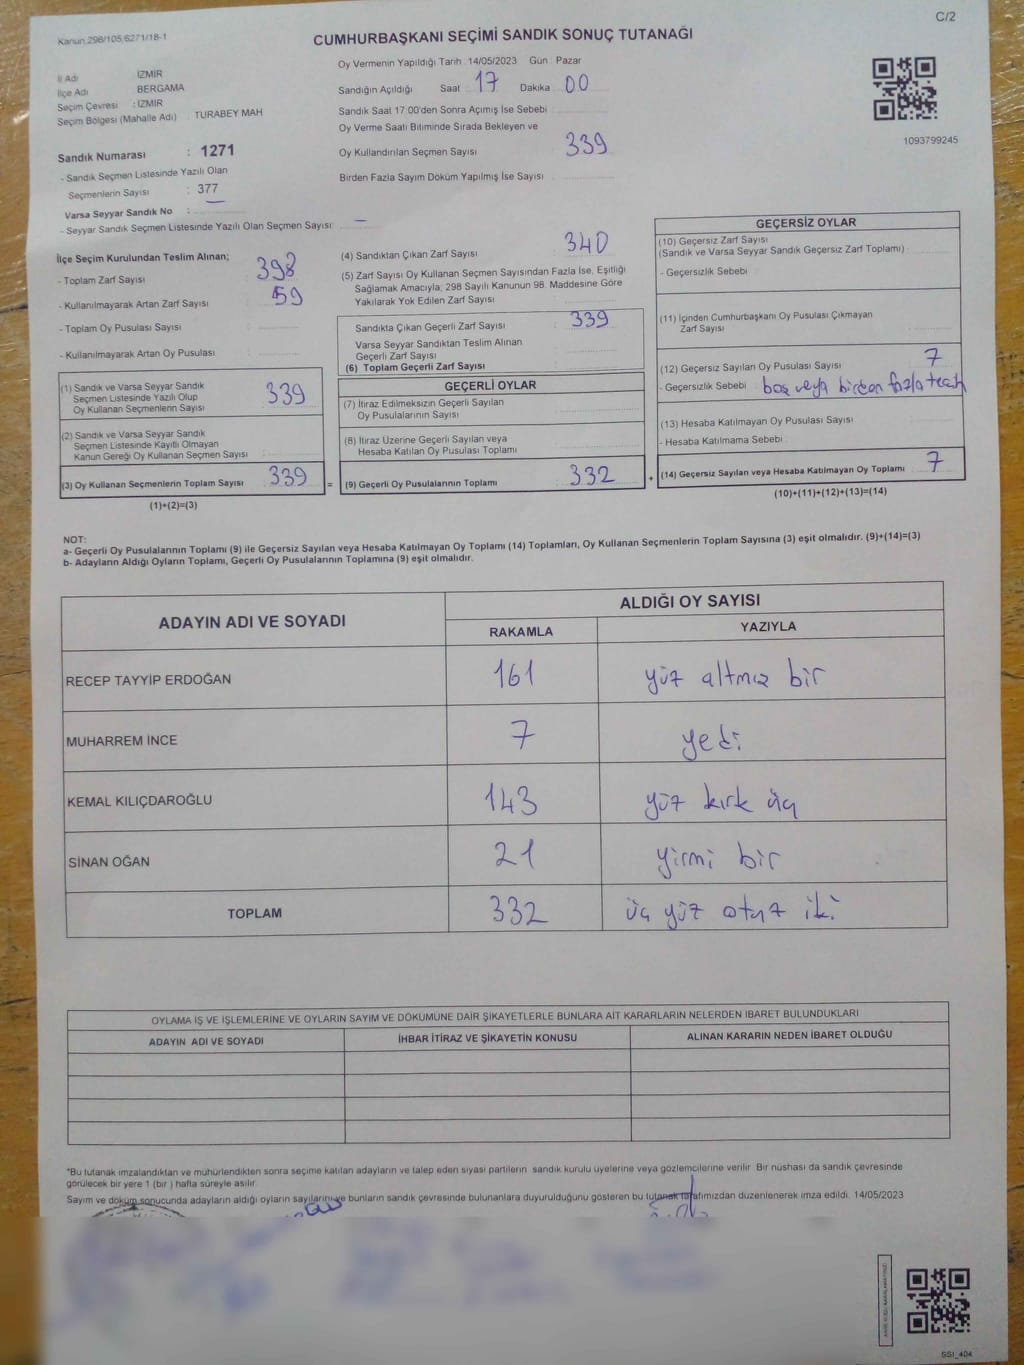 C/2
Kanun 298/105,6271/18-1
CUMHURBAŞKANI SEÇİMİ SANDIK SONUÇ TUTANAĞI
İl Adı : İZMİR
İlçe Adı : BERGAMA
Seçim Çevresi : İZMİR
Seçim Bölgesi (Mahalle Adı) : TURABEY MAH
Sandık Numarası : 1271
- Sandık Seçmen Listesinde Yazılı Olan
Seçmenlerin Sayısı : 377
Varsa Seyyar Sandık No :
- Seyyar Sandık Seçmen Listesinde Yazılı Olan Seçmen Sayısı: —
Oy Vermenin Yapıldığı Tarih : 14/05/2023 Gün : Pazar
Sandığın Açıldığı Saat 17 Dakika 00
Sandık Saat 17:00'den Sonra Açımış İse Sebebi
Oy Verme Saati Bitiminde Sırada Bekleyen ve
Oy Kullandırılan Seçmen Sayısı : 339
Birden Fazla Sayım Döküm Yapılmış İse Sayısı :
1093799245
İlçe Seçim Kurulundan Teslim Alınan;
- Toplam Zarf Sayısı : 398
- Kullanılmayarak Artan Zarf Sayısı : 59
- Toplam Oy Pusulası Sayısı :
- Kullanılmayarak Artan Oy Pusulası :
(1) Sandık ve Varsa Seyyar Sandık
Seçmen Listesinde Yazılı Olup
Oy Kullanan Seçmenlerin Sayısı : 339
(2) Sandık ve Varsa Seyyar Sandık
Seçmen Listesinde Kayıtlı Olmayan
Kanun Gereği Oy Kullanan Seçmen Sayısı :
(3) Oy Kullanan Seçmenlerin Toplam Sayısı : 339
(1)+(2)=(3)
(4) Sandıktan Çıkan Zarf Sayısı : 340
(5) Zarf Sayısı Oy Kullanan Seçmen Sayısından Fazla İse, Eşitliği
Sağlamak Amacıyla, 298 Sayılı Kanunun 98. Maddesine Göre
Yakılarak Yok Edilen Zarf Sayısı :
Sandıkta Çıkan Geçerli Zarf Sayısı : 339
Varsa Seyyar Sandıktan Teslim Alınan
Geçerli Zarf Sayısı :
(6) Toplam Geçerli Zarf Sayısı :
GEÇERLİ OYLAR
(7) İtiraz Edilmeksizin Geçerli Sayılan
Oy Pusulalarının Sayısı :
(8) İtiraz Üzerine Geçerli Sayılan veya
Hesaba Katılan Oy Pusulası Toplamı :
= (9) Geçerli Oy Pusulalarının Toplamı : 332 +
GEÇERSİZ OYLAR
(10) Geçersiz Zarf Sayısı
(Sandık ve Varsa Seyyar Sandık Geçersiz Zarf Toplamı) :
- Geçersizlik Sebebi :
(11) İçinden Cumhurbaşkanı Oy Pusulası Çıkmayan
Zarf Sayısı :
(12) Geçersiz Sayılan Oy Pusulası Sayısı : 7
- Geçersizlik Sebebi : boş veya birden fazla tercih
(13) Hesaba Katılmayan Oy Pusulası Sayısı :
- Hesaba Katılmama Sebebi :
(14) Geçersiz Sayılan veya Hesaba Katılmayan Oy Toplamı : 7
(10)+(11)+(12)+(13)=(14)
NOT:
a- Geçerli Oy Pusulalarının Toplamı (9) ile Geçersiz Sayılan veya Hesaba Katılmayan Oy Toplamı (14) Toplamları, Oy Kullanan Seçmenlerin Toplam Sayısına (3) eşit olmalıdır. (9)+(14)=(3)
b- Adayların Aldığı Oyların Toplamı, Geçerli Oy Pusulalarının Toplamına (9) eşit olmalıdır.
ADAYIN ADI VE SOYADI ALDIĞI OY SAYISI
RAKAMLA YAZIYLA
RECEP TAYYİP ERDOĞAN 161 yüz altmış bir
MUHARREM İNCE 7 yedi
KEMAL KILIÇDAROĞLU 143 yüz kırk üç
SİNAN OĞAN 21 yirmi bir
TOPLAM 332 üç yüz otuz iki
OYLAMA İŞ VE İŞLEMLERİNE VE OYLARIN SAYIM VE DÖKÜMÜNE DAİR ŞİKAYETLERLE BUNLARA AİT KARARLARIN NELERDEN İBARET BULUNDUKLARI
ADAYIN ADI VE SOYADI İHBAR İTİRAZ VE ŞİKAYETİN KONUSU ALINAN KARARIN NEDEN İBARET OLDUĞU
*Bu tutanak imzalandıktan ve mühürlendikten sonra seçime katılan adayların ve talep eden siyasi partilerin sandık kurulu üyelerine veya gözlemcilerine verilir. Bir nüshası da sandık çevresinde
görülecek bir yere 1 (bir) hafta süreyle asılır.
Sayım ve döküm sonucunda adayların aldığı oyların sayılarını ve bunların sandık çevresinde bulunanlara duyurulduğunu gösteren bu tutanak tarafımızdan düzenlenerek imza edildi. 14/05/2023
SSI_404